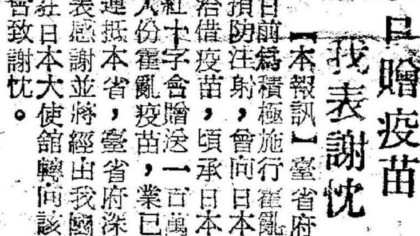 日贈疫苗
我表謝忱
【本報訊】臺省府
日前爲積極施行霍亂
預防注射,曾向日本
洽借疫苗,頃承日本
紅十字會贈送一百萬
人份霍亂疫苗,業已
運抵本省,臺省府深
表感謝並將經由我國
駐日本大使館轉向該
會致謝忱。